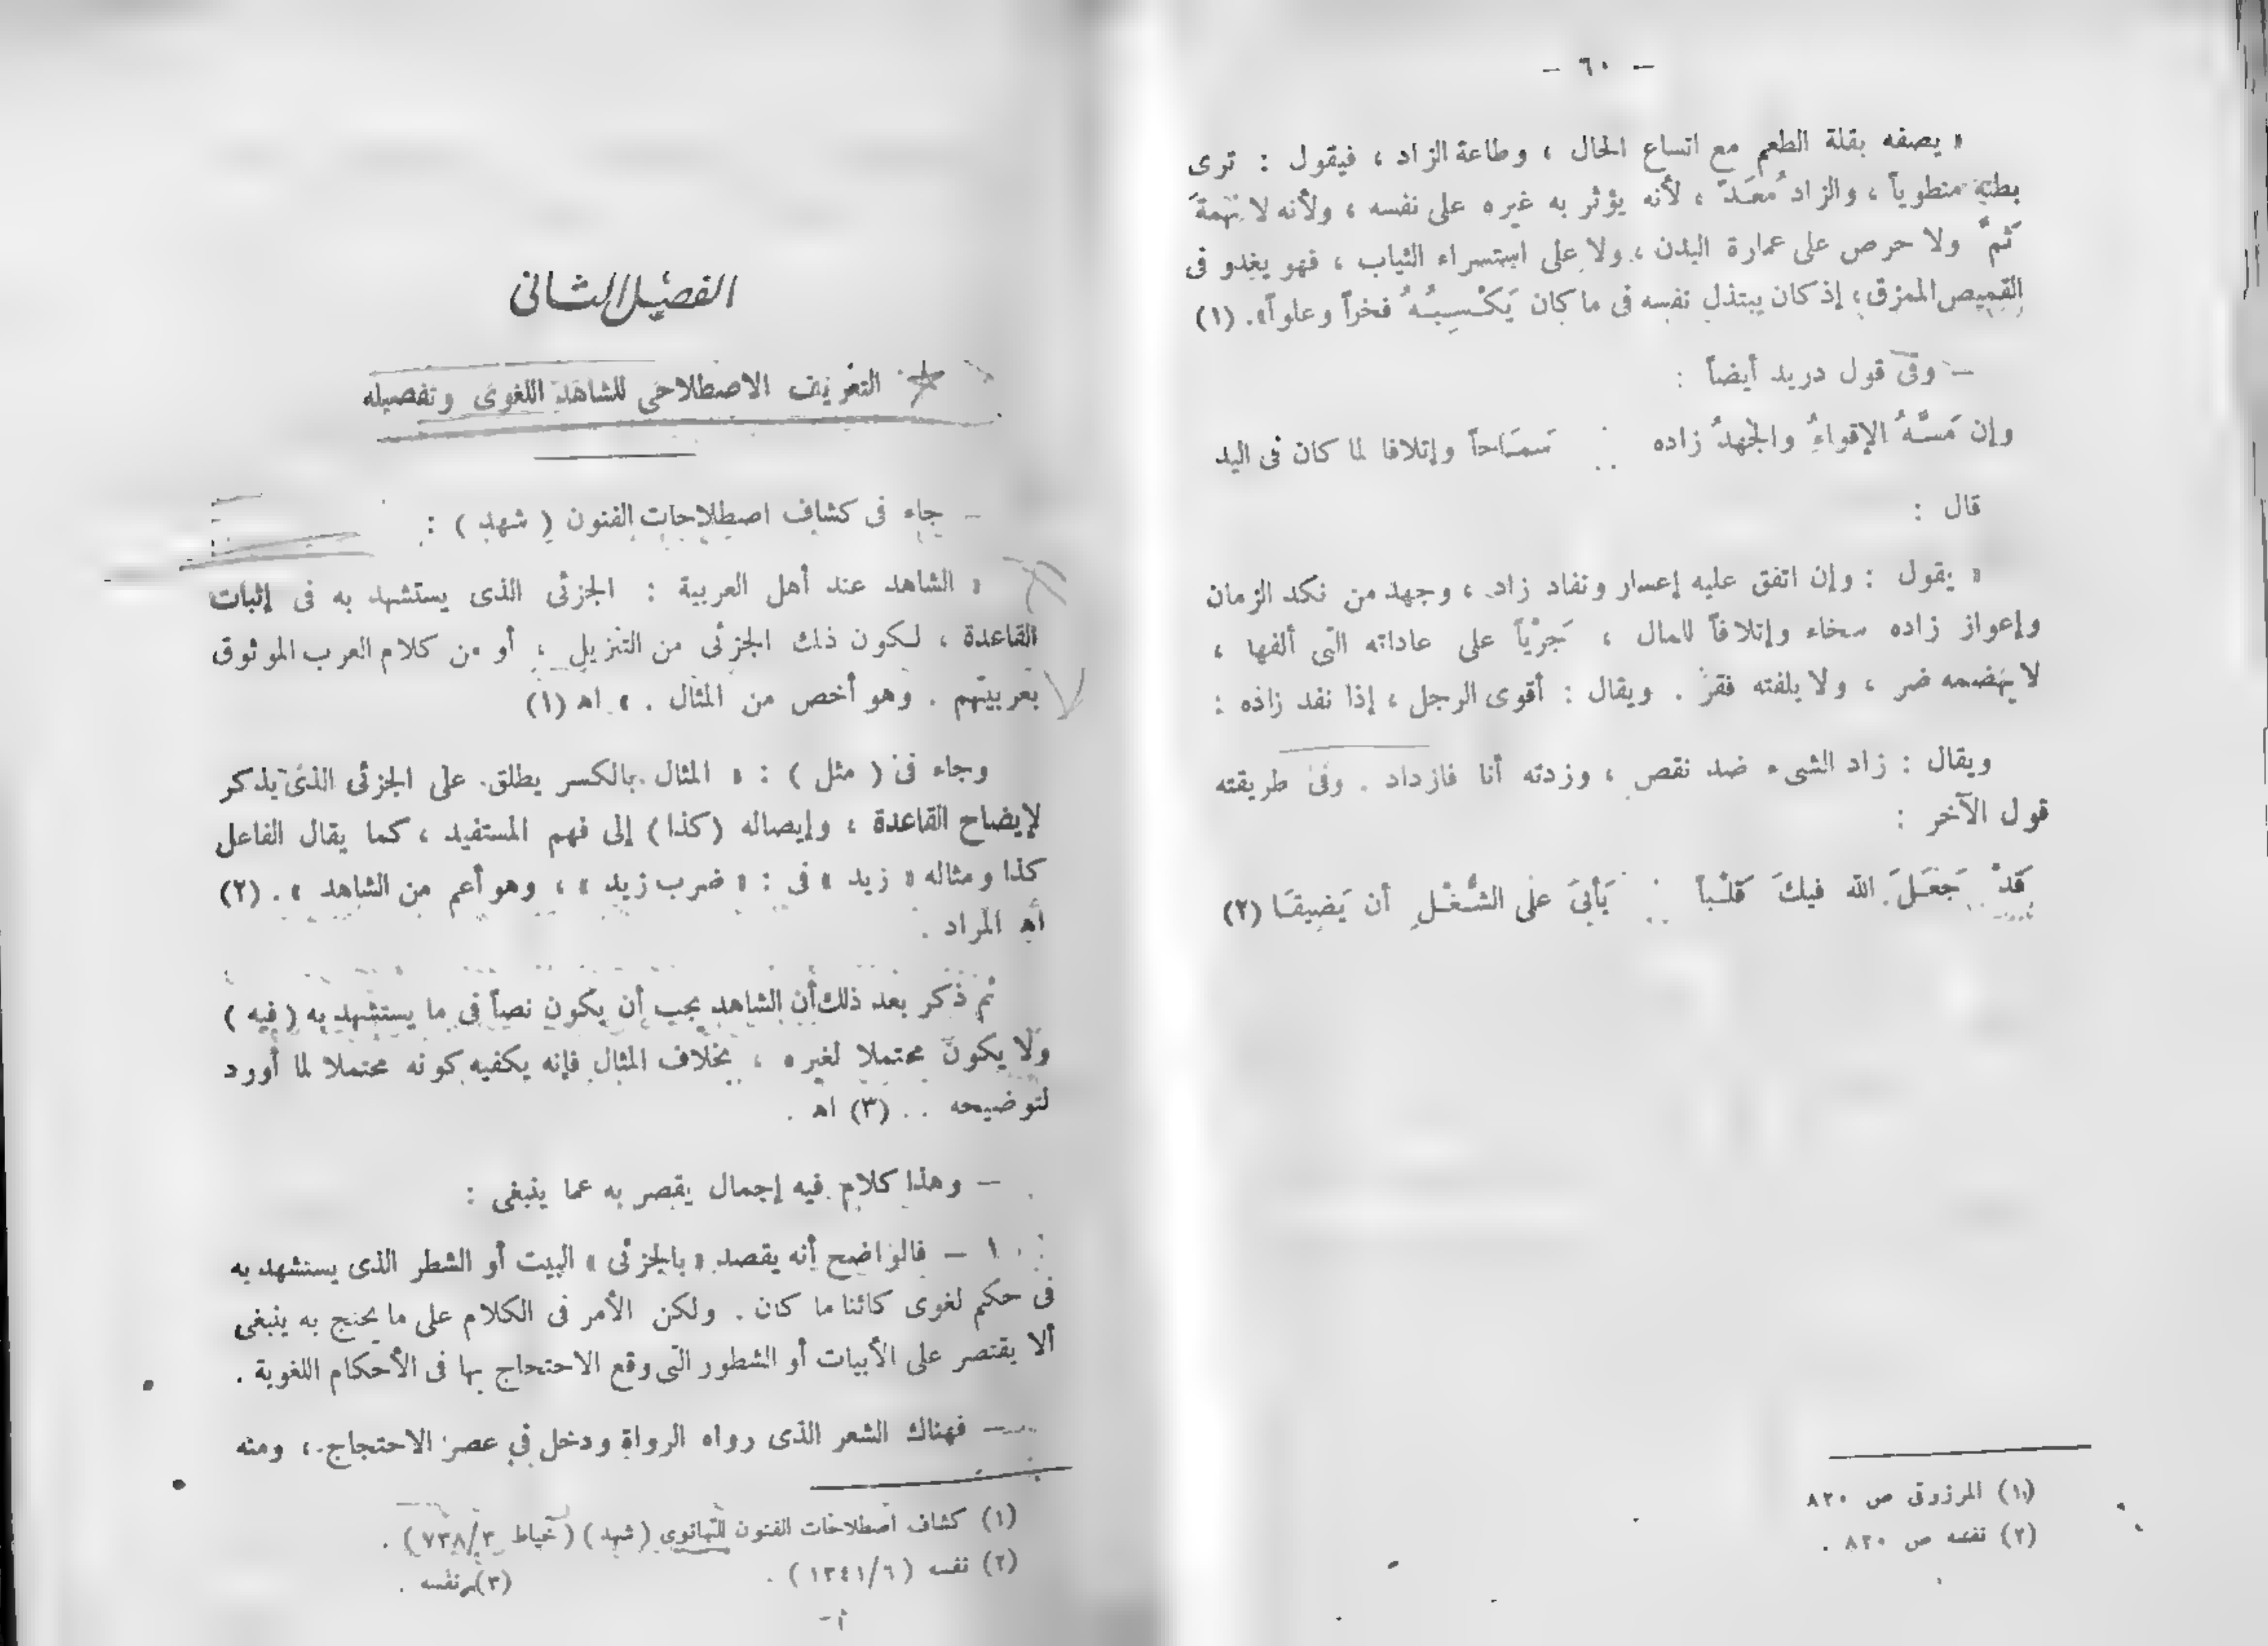 — ٦٠ —
« يصفه بقلة الطعم مع اتساع الحال ، وطاعة الزاد ، فيقول : ترى
بطنه منطوياً ، والزاد مُعَدّ ، لأنه يؤثر به غيره على نفسه ، ولأنه لا نَهْمَةَ
ثَمَّ ولا حرص على عمارة البدن ، ولا على استسراء الثياب ، فهو يغدو فى
القميص الممزق ، إذ كان يبتذل نفسه فى ما كان يَكْسِبُهُ فخراً وعلواً» . (١)
— وفى قول دريد أيضاً :
وإن مَسَّهُ الإقواءُ والجَهدُ زاده ∴ سَمَاحاً وإتلافا لما كان فى اليد
قال :
« يقول : وإن اتفق عليه إعسار ونفاد زاد ، وجهد من نكد الزمان
وإعواز زاده سخاء وإتلافاً للمال ، جَرْياً على عاداته التى ألفها ،
لا يهضمه ضر ، ولا يلفته فقر . ويقال : أقوى الرجل ، إذا نفد زاده :
ويقال : زاد الشىء ضد نقص ، وزدته أنا فازداد . وفى طريقته
قول الآخر :
قَدْ جَعَلَ الله فيكَ قَلْباً ∴ يَأبَى على الشُّغْلِ أن يَضِيقَا (٢)
(١) المرزوقى ص ٨٢٠
(٢) نفسه ص ٨٢٠ .
الفصل الثانى
التعريف الاصطلاحى للشاهد اللغوى وتفصيله
— جاء فى كشاف اصطلاحات الفنون ( شهد ) :
« الشاهد عند أهل العربية : الجزئى الذى يستشهد به فى إثبات
القاعدة ، لكون ذلك الجزئى من التنزيل ، أو من كلام العرب الموثوق
بعربيتهم . وهو أخص من المثال . » اهـ (١)
وجاء فى ( مثل ) : « المثال بالكسر يطلق على الجزئى الذى يذكر
لإيضاح القاعدة ، وإيصاله (كذا) إلى فهم المستفيد ، كما يقال الفاعل
كذا ومثاله « زيد » فى : « ضرب زيد » ، وهو أعم من الشاهد » . (٢)
أهـ المراد .
ثم ذكر بعد ذلك أن الشاهد يجب أن يكون نصاً فى ما يستشهد به ( فيه )
ولا يكون محتملا لغيره ، بخلاف المثال فإنه يكفيه كونه محتملا لما أورد
لتوضيحه . . (٣) اهـ .
— وهذا كلام فيه إجمال يقصر به عما ينبغى :
١ — فالواضح أنه يقصد « بالجزئى » البيت أو الشطر الذى يستشهد به
فى حكم لغوى كائنا ما كان . ولكن الأمر فى الكلام على ما يحتج به ينبغى
ألا يقتصر على الأبيات أو الشطور التى وقع الاحتجاج بها فى الأحكام اللغوية .
— فهناك الشعر الذى رواه الرواة ودخل فى عصر الاحتجاج ، ومنه
(١) كشاف اصطلاحات الفنون للتهانوى (شهد) (خياط ٧٣٨/٣) .
(٢) نفسه ( ١٣٤١/٦ ) .
(٣) نفسه .